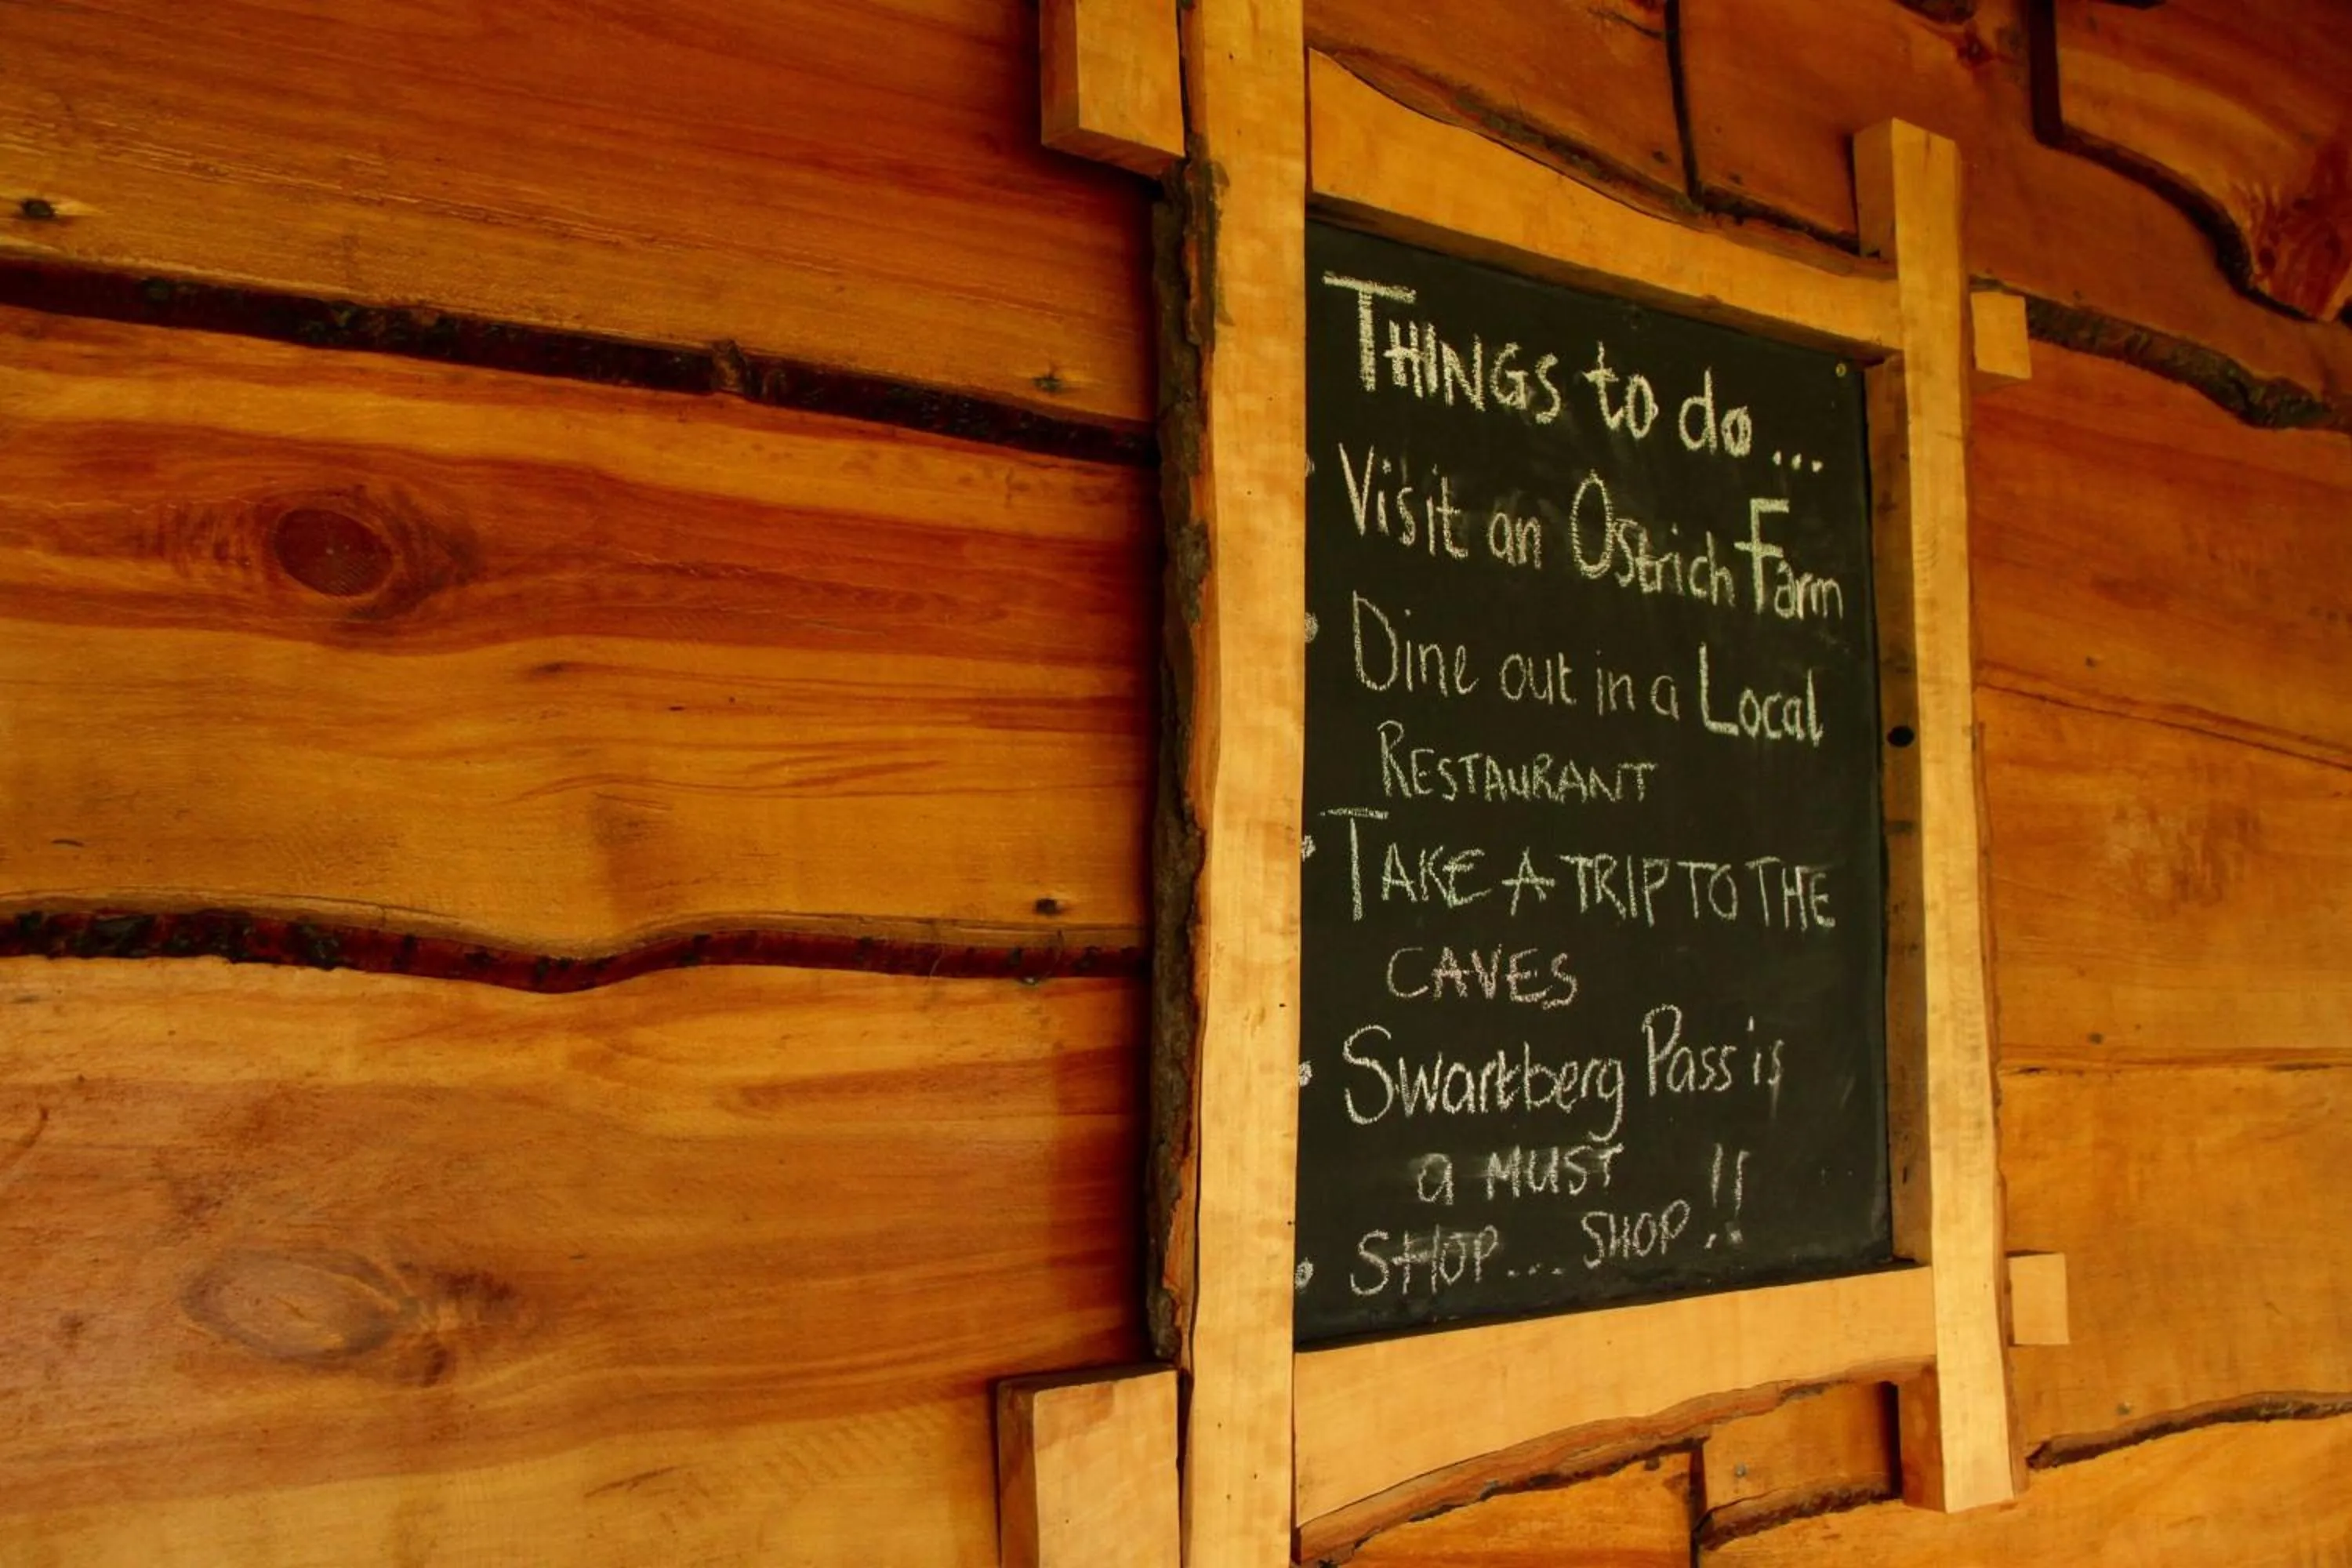 THINGS to do...
• Visit an Ostrich Farm
• Dine out in a Local
RESTAURANT
• TAKE A TRIP TO THE
CAVES
• Swartberg Pass is
a MUST
• SHOP... SHOP!!